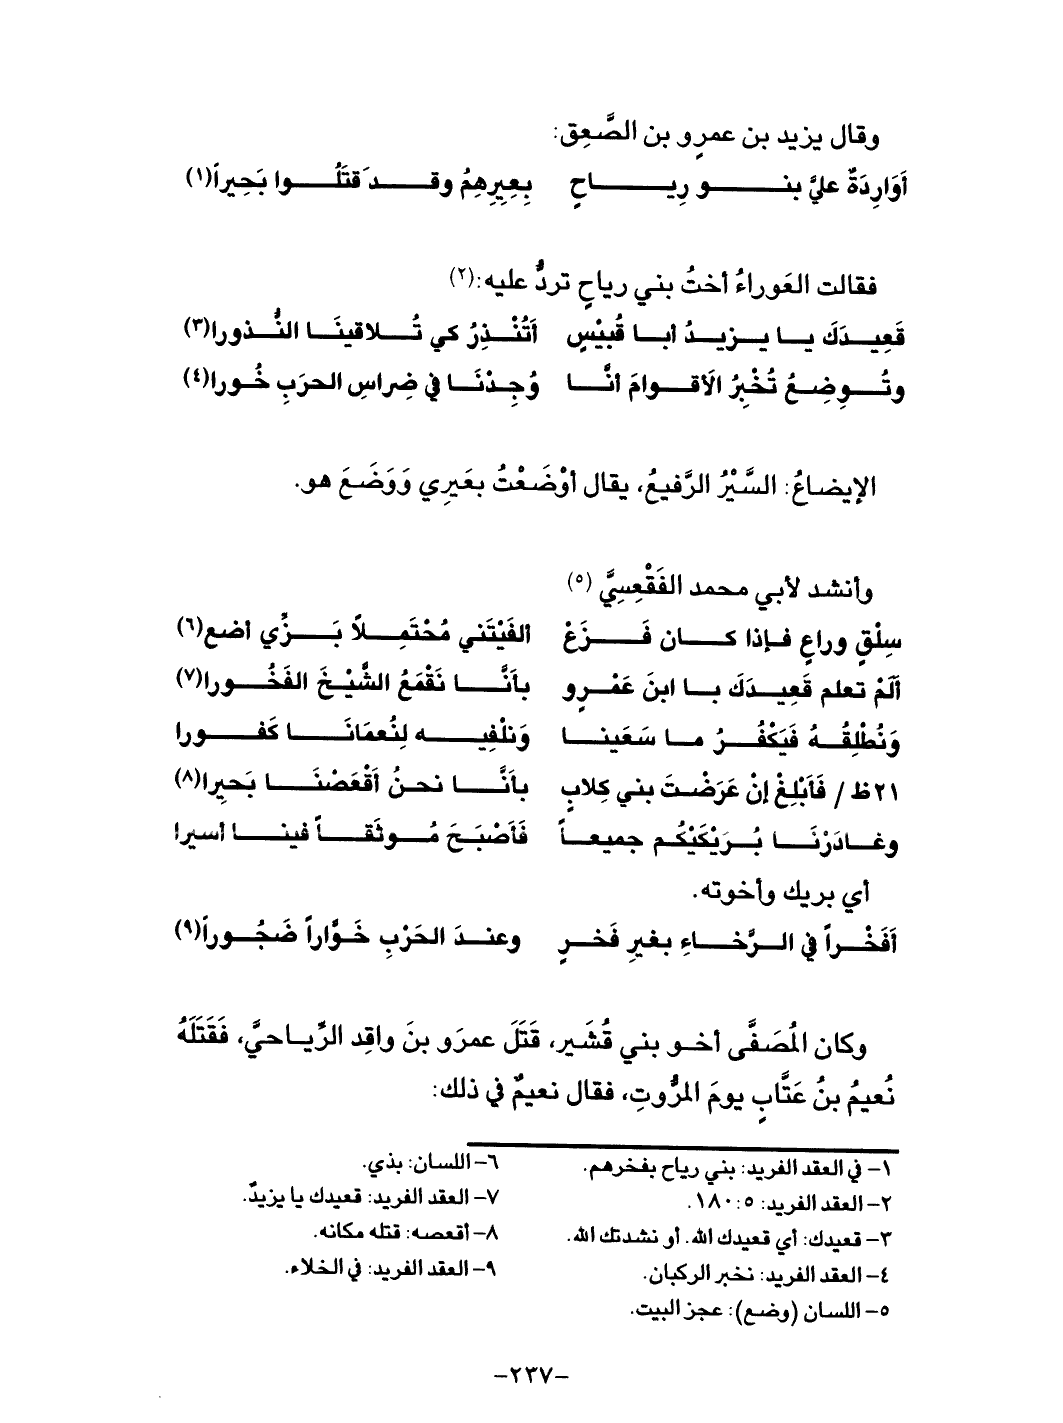 وقال يزيد بن عمرٍو بن الصَّعِق:
أوَارِدَةٌ عليَّ بنو رِياحٍ بِعِيرِهِمُ وقد قَتَلُوا بَحِيراً(١)
فقالت العَوراءُ أختُ بني رياحٍ تردُّ عليه:(٢)
قَعِيدَكَ يا يزيدُ أبا قُبيْسٍ أتُنْذِرُ كي تُلاقينَا النُّذورا(٣)
وتُوضِعُ تُخْبِرُ الَأقوامَ أنَّا وُجِدْنَا في ضِراسِ الحرَبِ خُورا(٤)
الإيضاعُ: السَّيْرُ الرَّفيعُ، يقال أوْضَعْتُ بعَيرِي وَوَضَعَ هو.
وأنشد لأبي محمد الفَقْعِسِيَّ (٥)
سِلْقٍ وراعٍ فإذا كان فَزَعْ الفَيْتَني مُحْتَمِلاً بَزِّي أضع(٦)
ألَمْ تعلم قَعِيدَكَ با ابنَ عَمْرٍو بأنَّا نَقْمَعُ الشَّيْخَ الفَخُورا(٧)
وَنُطْلِقُهُ فَيَكْفُرُ ما سَعَينا وَنلْفِيه لِنُعمَانَا كَفورا
٢١ظ/ فَأبْلِغْ إنْ عَرَضْتَ بني كِلابٍ بأنَّا نحنُ أقْعَصْنَا بَحيِرا(٨)
وغادَرْنَا بُرَيْكَيْكُم جميعاً فَأصْبَحَ مُوثَقاً فينا أسيرا
أي بريك وأخوته.
أفَخْراً في الرَّخاءِ بغيرِ فَخرٍ وعندَ الحَرْبِ خَوَّاراً ضَجُوراً(٩)
وكان المُصَفَّى أخو بني قُشَير، قَتَلَ عمرَو بنَ واقِد الرِّياحيَّ، فَقَتَلَهُ
نُعيمُ بنُ عَتَّابٍ يومَ المرُّوتِ، فقال نعيمٌ في ذلك:
١- في العقد الفريد: بني رياح بفخرهم.
٢- العقد الفريد: ١٨٠:٥.
٣- قعيدك: أي قعيدك الله. أو نشدتك الله.
٤- العقد الفريد: نخبر الركبان.
٥- اللسان (وضع): عجز البيت.
٦- اللسان: بذي.
٧- العقد الفريد: قعيدك يا يزيدٌ.
٨- أقعصه: قتله مكانه.
٩- العقد الفريد: في الخلاء.
-٢٣٧-